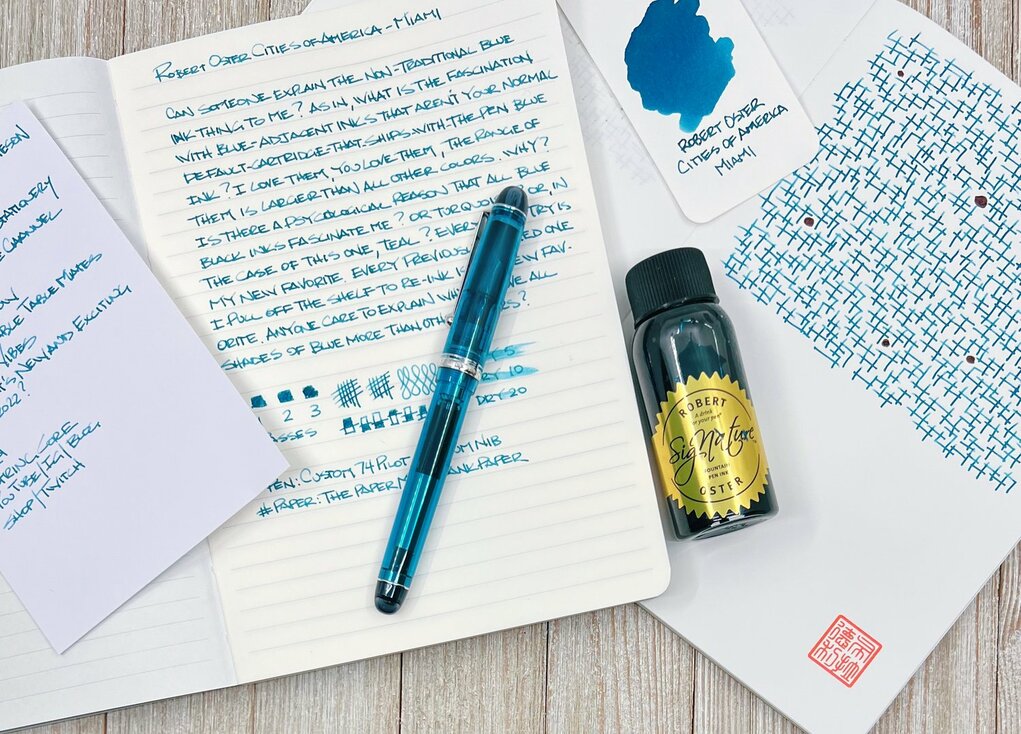 ROBERT OSTER CITIES OF AMERICA - MIAMI
CAN SOMEONE EXPLAIN THE NON-TRADITIONAL BLUE
INK THING TO ME? AS IN, WHAT IS THE FASCINATION
WITH BLUE-ADJACENT INKS THAT AREN'T YOUR NORMAL
DEFAULT-CARTRIDGE-THAT-SHIPS-WITH-THE-PEN BLUE
INK? I LOVE THEM, YOU LOVE THEM, THE RANGE OF
THEM IS LARGER THAN ALL OTHER COLORS. WHY?
IS THERE A PSYCOLOGICAL REASON THAT ALL BLUE
BLACK INKS FASCINATE ME? OR TORQUOISE? OR IN
THE CASE OF THIS ONE, TEAL? EVERY TRY IS
MY NEW FAVORITE. EVERY PREVIOUS ONE
I PULL OFF THE SHELF TO RE-INK IS NEW FAV-
ORITE. ANYONE CARE TO EXPLAIN WE ALL
SHADES OF BLUE MORE THAN OTHER
2 3
DRY 20
PEN: CUSTOM 74 PILOT NIB
# PAPER: THE PAPER PAPER
STATIONERY
CHANNEL
TABLE MATES
VIBES
NEW AND EXCITING
2022?
CORE
YOUTUBE/IG/BLOG
SHOP/TWITCH
ROBERT OSTER
CITIES OF AMERICA
MIAMI
ROBERT
A drink
for your pen
Signature
FOUNTAIN
PEN INK
OSTER